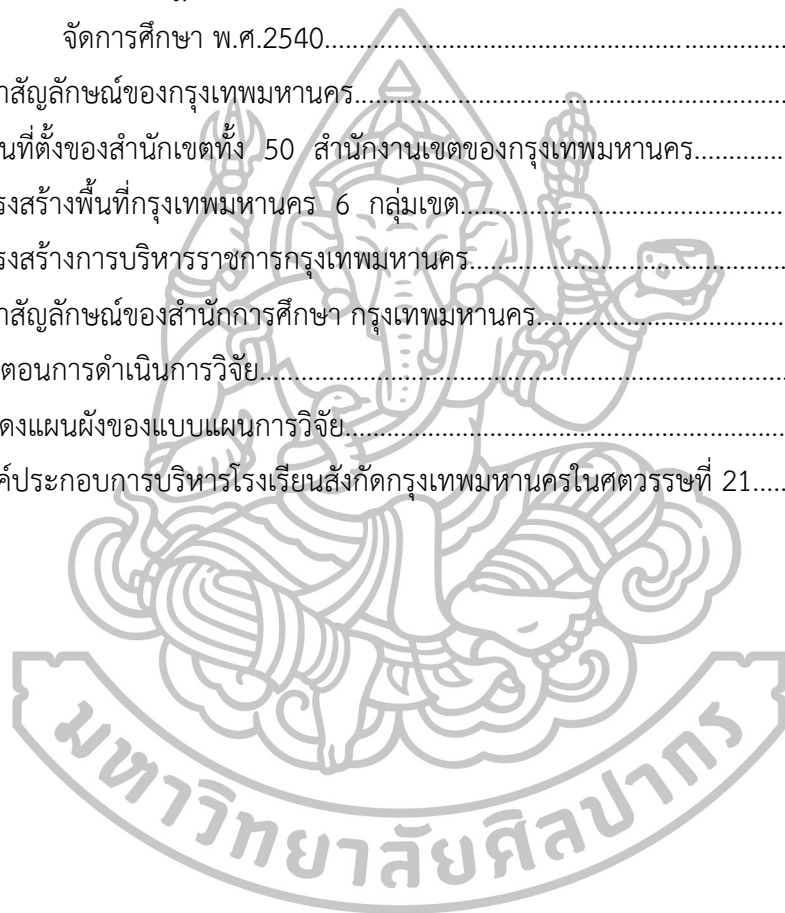 จัดการศึกษา พ.ศ.2540
าสัญลักษณ์ของกรุงเทพมหานคร
นที่ตั้งของสำนักเขตทั้ง 50 สำนักงานเขตของกรุงเทพมหานคร
รงสร้างพื้นที่กรุงเทพมหานคร 6 กลุ่มเขต
รงสร้างการบริหารราชการกรุงเทพมหานคร
าสัญลักษณ์ของสำนักการศึกษา กรุงเทพมหานคร
ตอนการดำเนินการวิจัย
ดงแผนผังของแบบแผนการวิจัย
ค์ประกอบการบริหารโรงเรียนสังกัดกรุงเทพมหานครในศตวรรษที่ 21
มหาวิทยาลัยศิลปากร